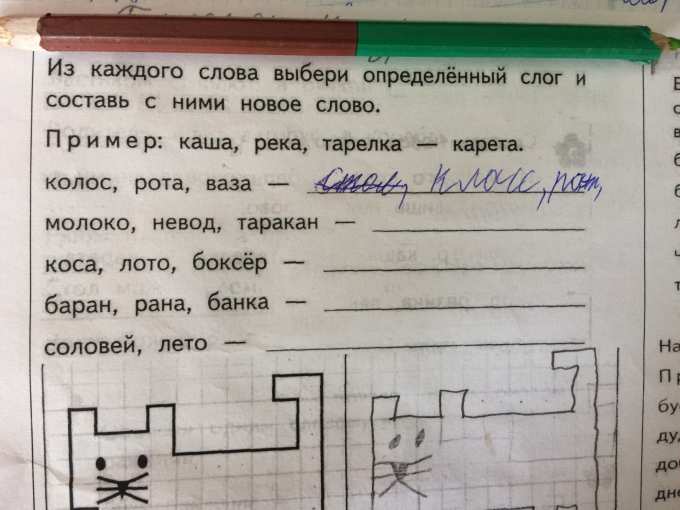 Из каждого слова выбери определённый слог и
составь с ними новое слово.
Пример: каша, река, тарелка — карета.
колос, рота, ваза — класс,
молоко, невод, таракан —
коса, лото, боксёр —
баран, рана, банка —
соловей, лето —